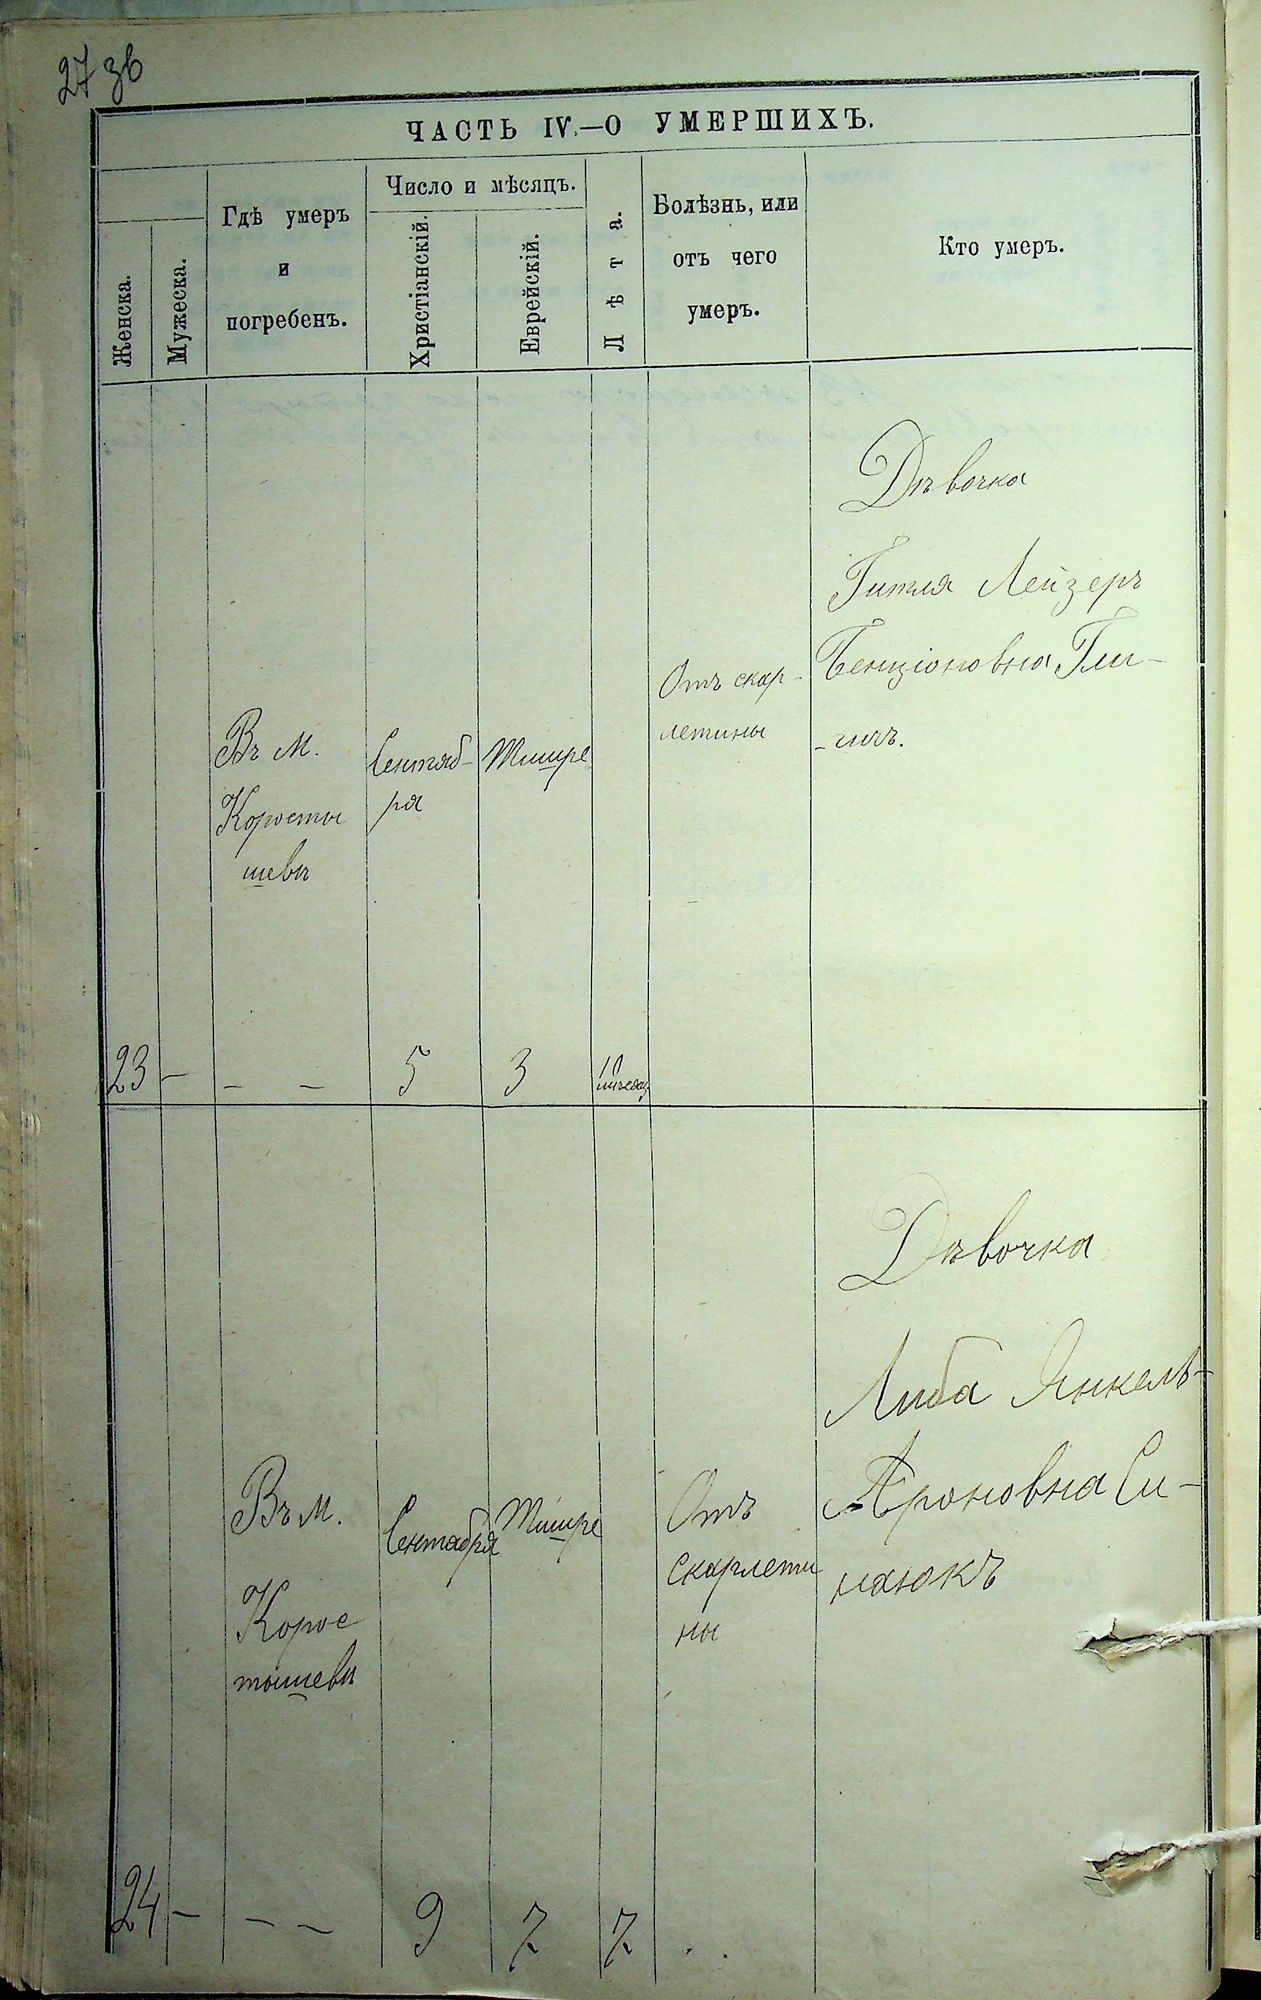 27 зв
ЧАСТЬ IV.—О УМЕРШИХЪ.
Женска.
Мужеска.
Гдѣ умеръ
и
погребенъ.
Число и мѣсяцъ.
Христіанскій.
Еврейскій.
Лѣта.
Болѣзнь, или
отъ чего
умеръ.
Кто умеръ.
23
—
Въ М.
Коросты
шевѣ
— —
Сентяб-
ря
5
Тишре
3
10
мѣсяц.
Отъ скар-
летины
Дѣвочка
Гитля Лейзеръ
Бенціоновна
24
—
Въ М.
Корос
тышевѣ
— —
Сентября
9
Тишре
7
7
Отъ
скарлети
ны
Дѣвочка
Либа Янкель-
Ароновна Си-